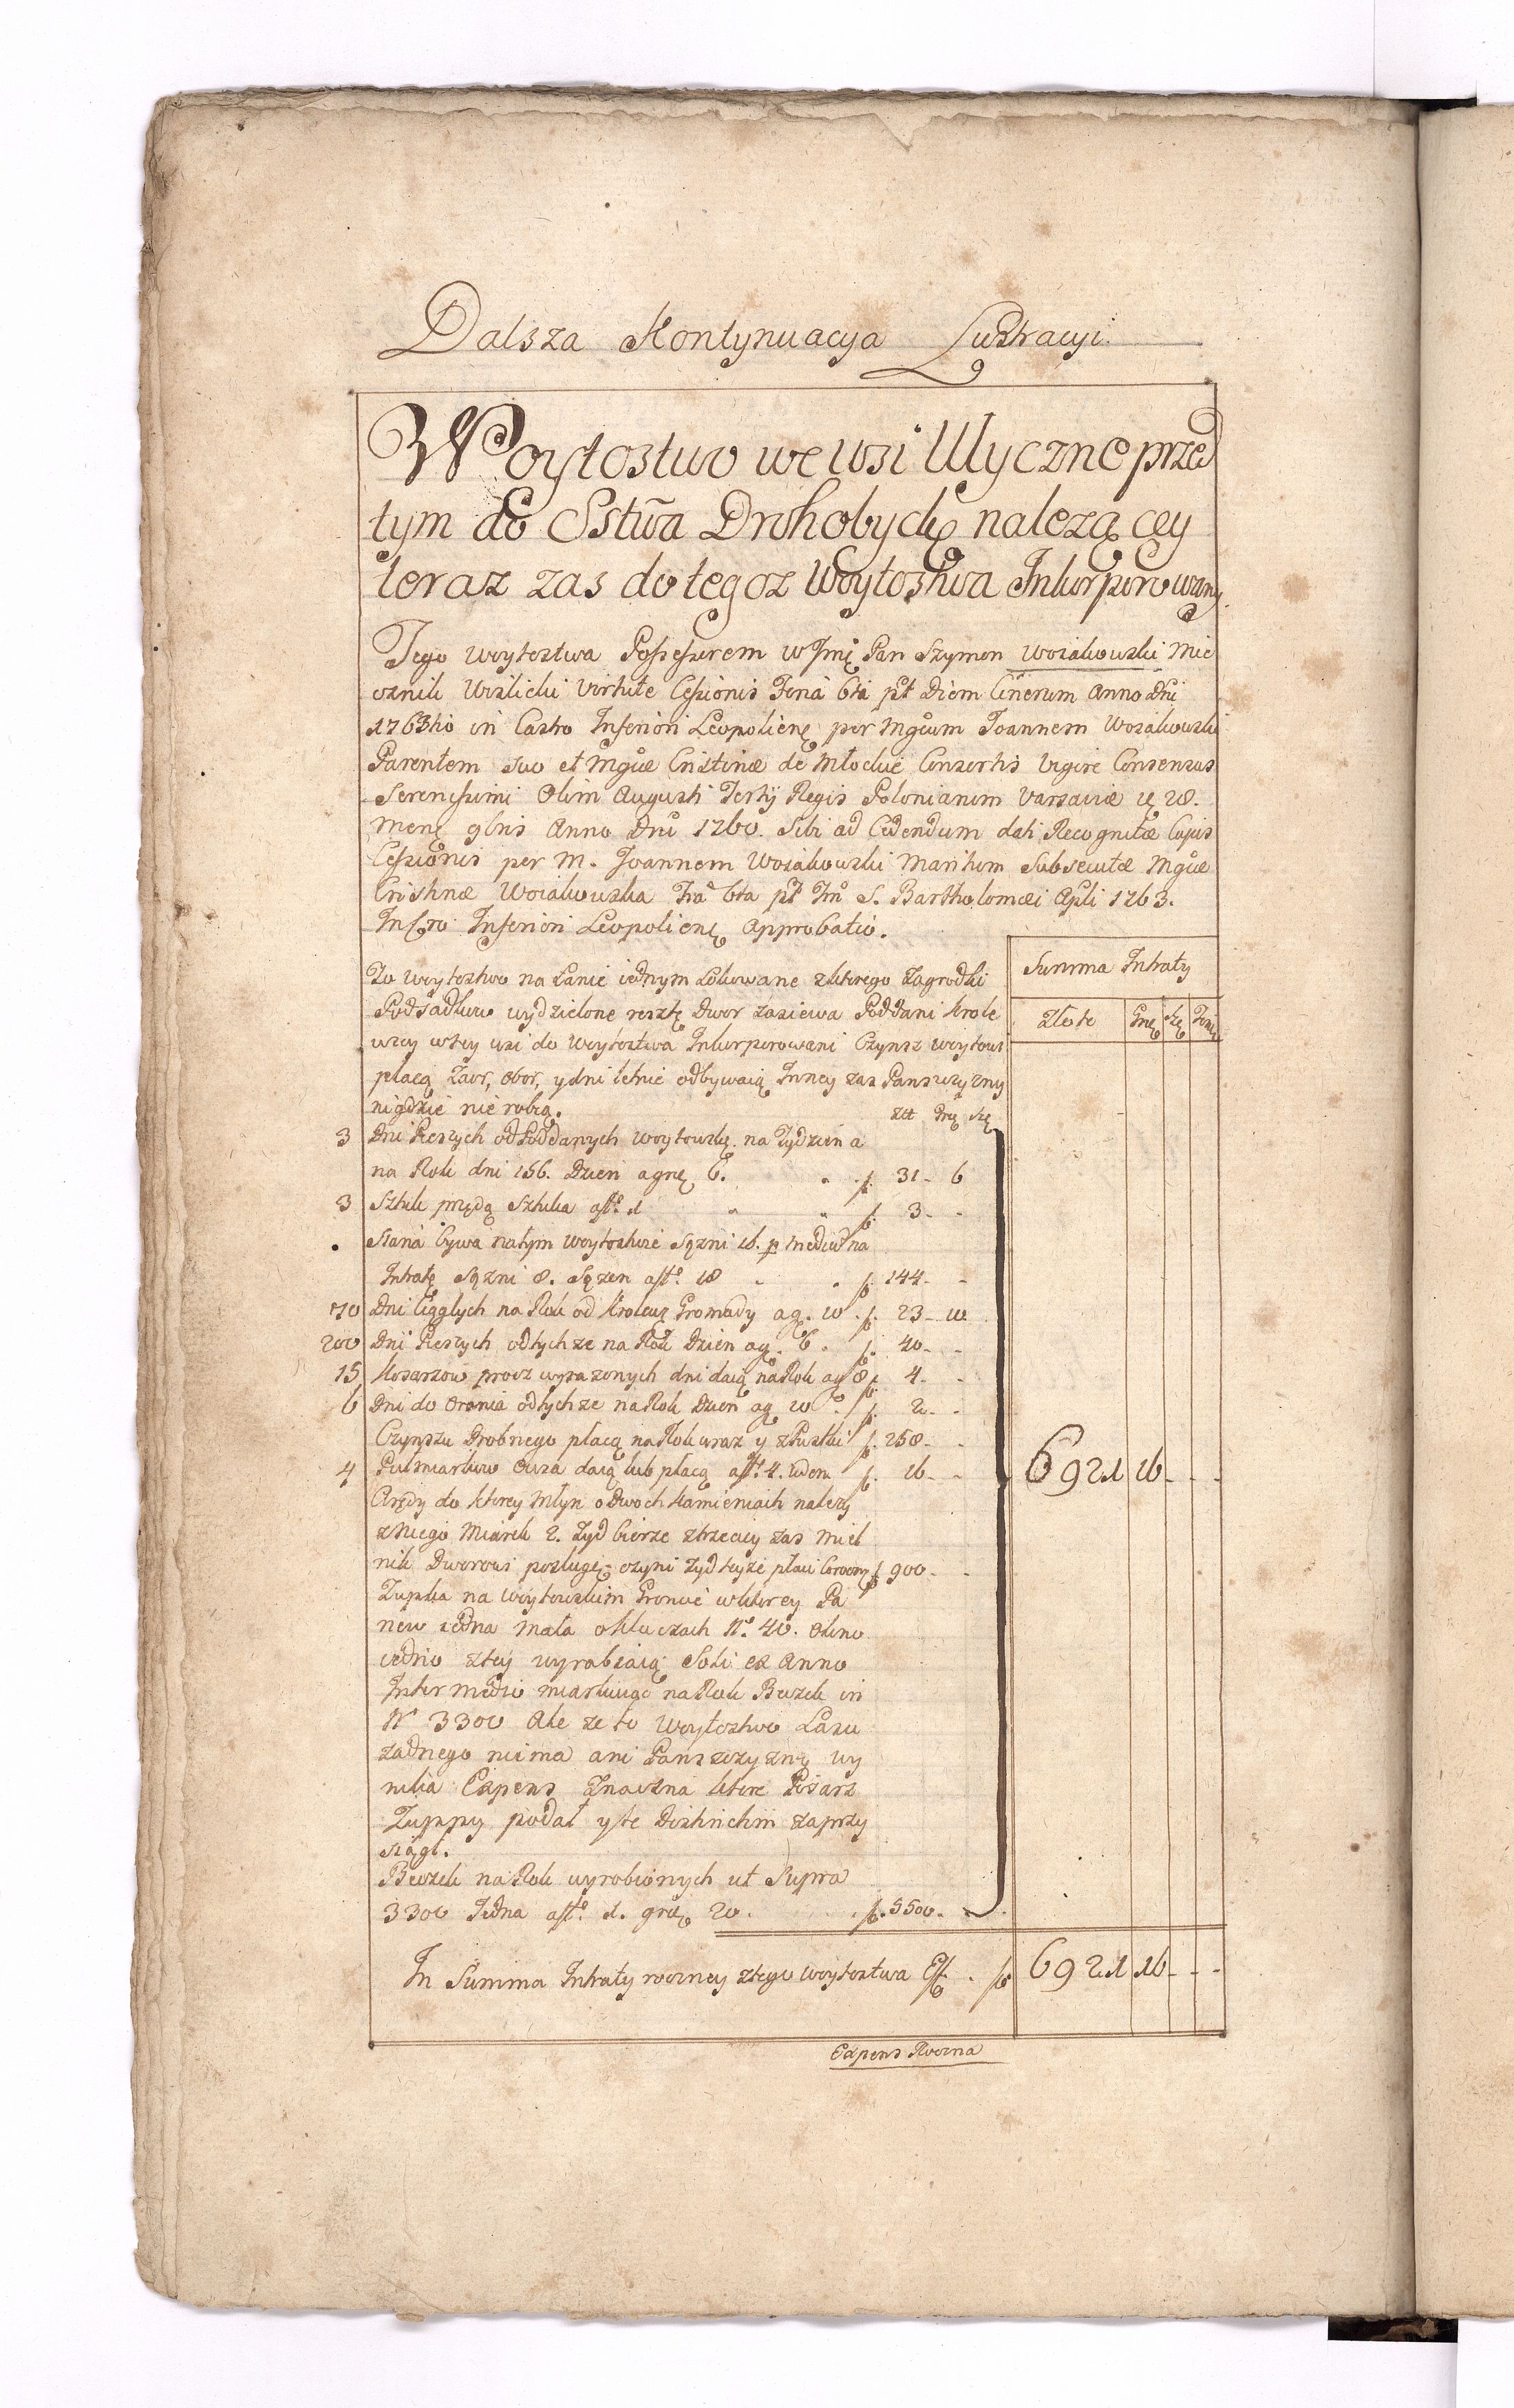 Dalsza Kontynuacya Lustracyi.
Woytostwo we wsi Ulyczne przed
tym do Sstwa Drohobyckę nalezącey
teraz zas do tegoz Woytostwa Inkorporowany.
Tego woytostwa Possessorem WJmę Pan Szymon Woiakowski Mie
cznik Wislicki virtute Cessionis Feria 6ta pt Diem Cinerum Anno Dni
1763tio in Castro Inferiori Leopolienę per Mgcum Joannem Woiakowski
Parentem suo et Mgcae Cristinae de Consortis vigore Consensus
Serenissimi Olim Augusti Tertij Regis Poloniarum Varsaviae 28.
Menę 9bris Anno Dni 1760. Sibi ad Cedendum dati, Recognitae Copis
Cessionis per M. Joannem Woiakowski Maritum Subsecutae Mgcae
Cristinae Woiakowska Fria 6ta pt Fm S. Bartholomaei Apli 1763.
In Cro Inferiori Leopolienę Approbatio.
To woytostwo na Łanie iednym Lokowane z ktorego Zagrodki
Podsadkow wydzielone resztę Dwor zasiewa Poddani Krole
wscy w tey wsi do Woytostwa Inkorporowani Czynsz woytowi
płacą Zaor, Obor, y dni letnie odbywaią Inney zas Panszczyzny
nigdzie nie robią.
Summa Intraty
Złote Grę Szę
złt Grę Szę
3 Dni Pieszych od Poddanych woytowskę na Tydzien a
na Rok dni 156. Dzien a grę 6. . . f. 31 - 6
3 Sztuk przędą Sztuka a fto 1 " " f. 3 - -
Siana bywa na tym woytostwie Sązni 16. p medietę na
Intratę Sązni 8. Sązen a fto 18 . . f. 144 - -
70 Dni Ciągłych na Rok od Krolewę Gromady a g. 10 . f. 23 - 10
200 Dni Pieszych od tychze na Rok Dzien a g. 6 . f. 40 - -
15 Kosarzow procz wyrazonych dni daią na Rok a g 8 f. 4 - -
6 Dni do Orania od tychze na Rok Dzien a g. 10 . f. 2 - -
Czynszu Drobnego płacą na Rok wraz y z Pustki f. 258 - -
4 Pułmiarkow Owsa daią lub płacą a fto 4. idem f. 16 - -
Arędy do ktorey Młyn o dwoch Kamieniach nalezy
z niego Miarek 2. Zyd bierze z trzeciey zas Miel
nik Dworowi posługę czyni Zyd teyze płaci Corocznę f. 900 - -
Zupka na Woytowskim Gruncie w ktorey Pa
new iedna mała o Kluczach No 40. Okno
iedno z tey wyrabiaią Soli ex Anno
Intermedio miarkuiąc na Rok Beczek in
No 3300 Ale ze to Woytostwo Lasu
zadnego nie ma ani Panszczyzny wy
nika Expens znaczna ktore Pisarz
Zuppy podał y te Districtim zaprzy
siągł.
Beczek na Rok wyrobionych ut Supra
3300 Jedna a fto 1. grę 20. . . f. 5500 - -
6921 16 - - -
In Summa Intraty roczney z tego Woytostwa Est . f 6921 16 - - -
Expens Roczna